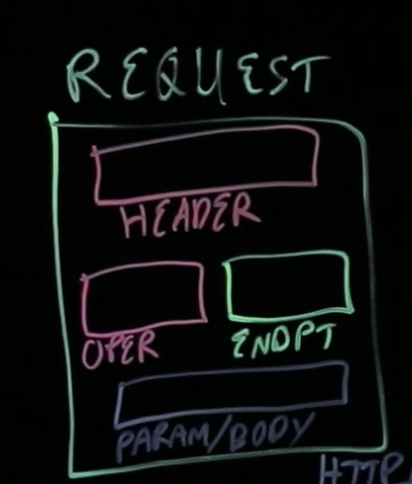 REQUEST
HEADER
OPER ENDPT
PARAM/BODY
HTTP